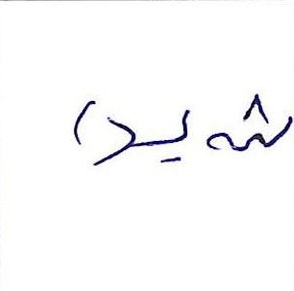 شهیدا